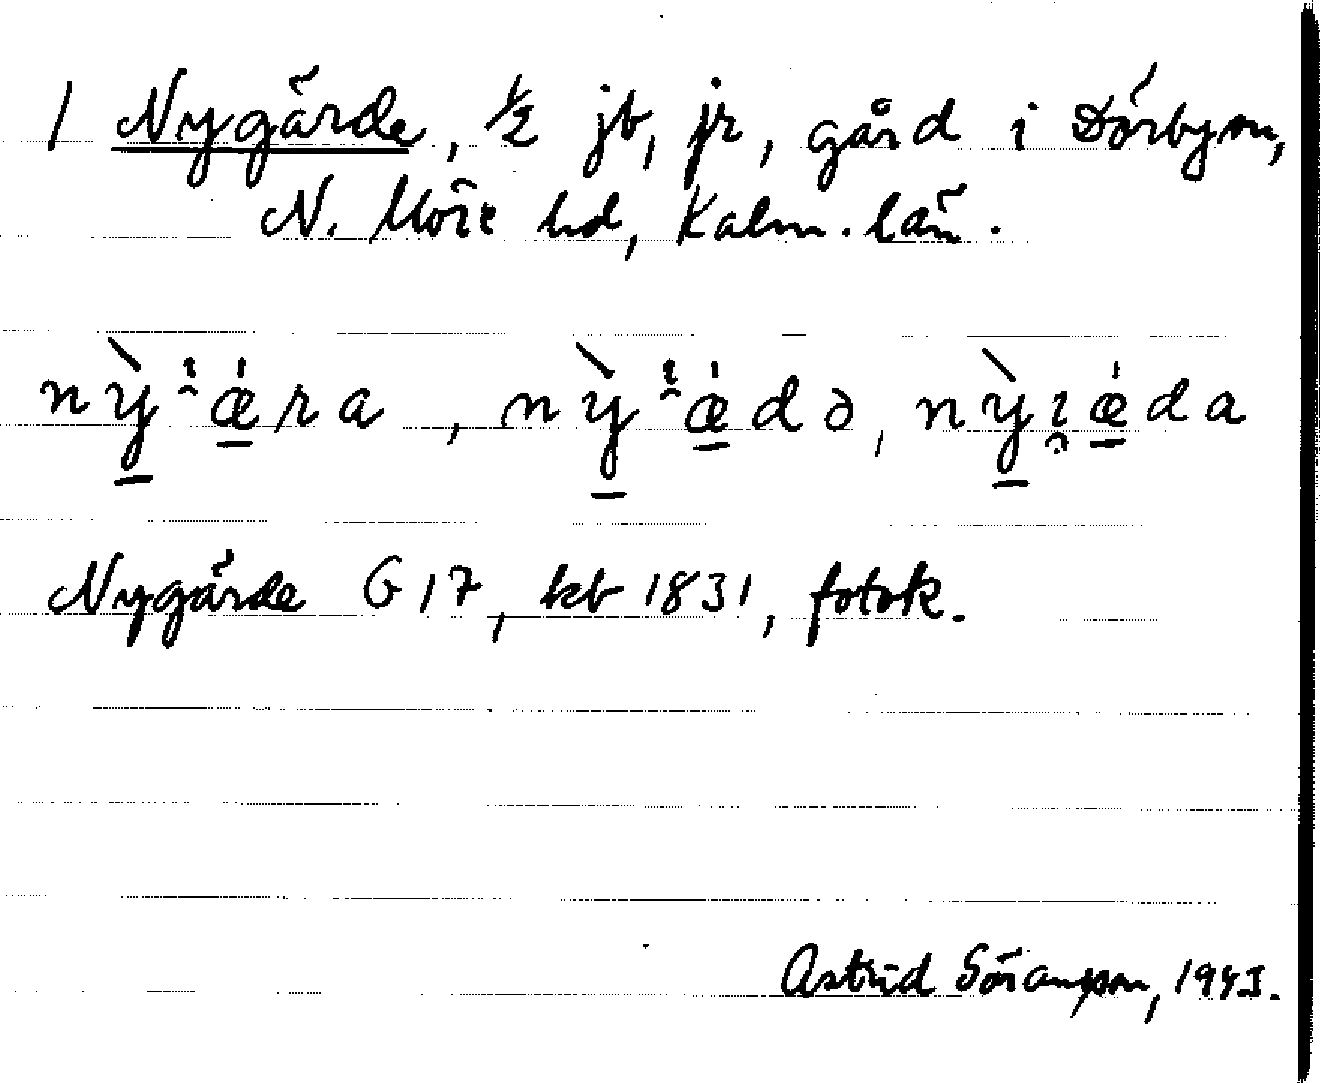 1 Nygärde, ½ jb, jr, gård i Dörby sn,
N. Möre hd, Kalm. län.
nỳ æ̠ra, nỳ æ̠də, nỳı̯æ̠da
Nygärde G 17, kb 1831, fotok.
Astrid Göransson, 1943.